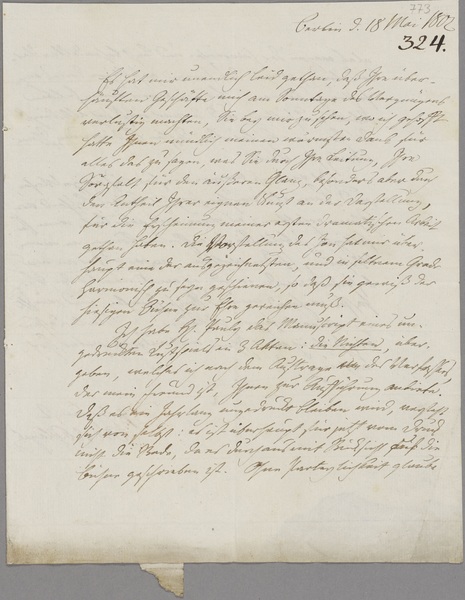 773
Berlin d. 18 Mai 1802
324.
Es hat mir unendlich leid gethan, daß Ihre über-
häuften Geschäfte mich am Sonntage des Vergnügens
verlustig machten, Sie bey mir zu sehen, wo ich gehofft
hatte Ihnen mündlich meinen wärmsten Dank für
alles das zu sagen, was Sie durch Ihre Leitung, Ihre
Sorgfalt für den äußeren Glanz, besonders aber durch
den Antheil Ihrer eignen Kunst an der Darstellung,
für die Erscheinung meiner ersten dramatischen Arbeit
gethan haben. Die Vorstellung des Jon hat mir über-
haupt eine der ausgezeichnetsten, und in seltnem Grade
harmonisch zu seyn geschienen, so daß sie gewiß der
hiesigen Bühne zur Ehre gereichen muß.
Ich habe H. Pauly das Manuscript eines un-
gedruckten Lustspiels in 3 Akten: die über-
geben, welches ich nach dem Auftrage des Verfassers,
der mein Freund ist, Ihnen zur Aufführung anbiete.
Daß es ein Jahr lang ungedruckt bleiben wird, versteht
sich von selbst: es ist überhaupt für jetzt vom Druck
nicht die Rede, da es durchaus mit Rücksicht auf die
Bühne geschrieben ist. Ohne Parteylichkeit glaube